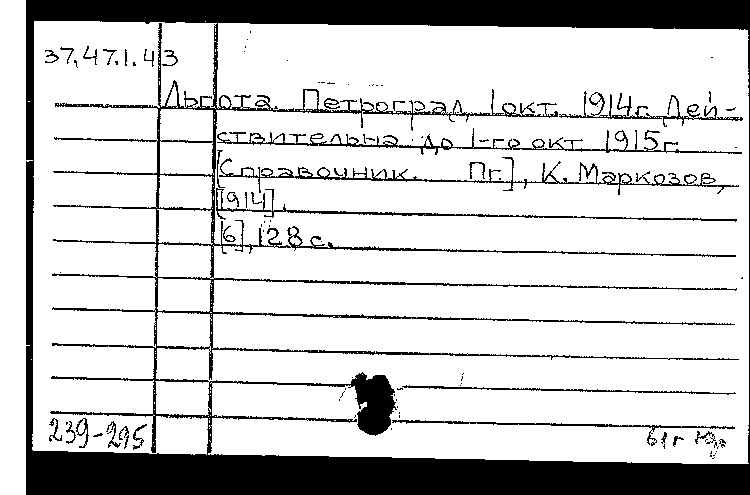 37.47.1.43
Льгота. Петроград, 1 окт. 1914г. Дей-
ствительна до 1-го окт 1915г.
[Справочник. Пг.], К. Маркозов,
[1914].
[6], 128 с.
239-295
61г